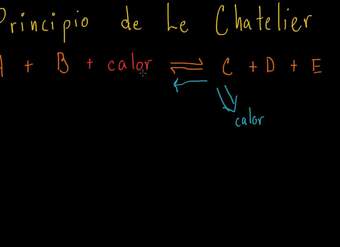 Principio de Le Chatelier
A + B + calor ⇌ C + D + E
calor